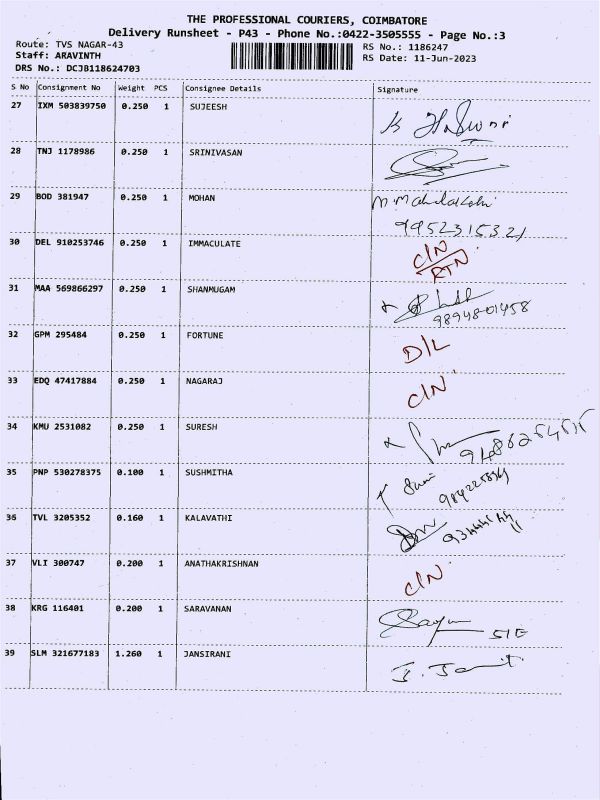 THE PROFESSIONAL COURIERS, COIMBATORE
Delivery Runsheet - P43 - Phone No.:0422-3505555 - Page No.:3
Route: TVS NAGAR-43 RS No.: 1186247
Staff: ARAVINTH RS Date: 11-Jun-2023
DRS No.: DCJB118624703
S No Consignment No Weight PCS Consignee Details Signature
27 IXM 503839750 0.250 1 SUJEESH
28 TNJ 1178986 0.250 1 SRINIVASAN
29 BOD 381947 0.250 1 MOHAN
9952315321
30 DEL 910253746 0.250 1 IMMACULATE C/N
RTN
31 MAA 569866297 0.250 1 SHANMUGAM
9894801458
32 GPM 295484 0.250 1 FORTUNE D/L
33 EDQ 47417884 0.250 1 NAGARAJ C/N
34 KMU 2531082 0.250 1 SURESH
35 PNP 530278375 0.100 1 SUSHMITHA
36 TVL 3205352 0.160 1 KALAVATHI
37 VLI 300747 0.200 1 ANATHAKRISHNAN C/N
38 KRG 116401 0.200 1 SARAVANAN
39 SLM 321677183 1.260 1 JANSIRANI